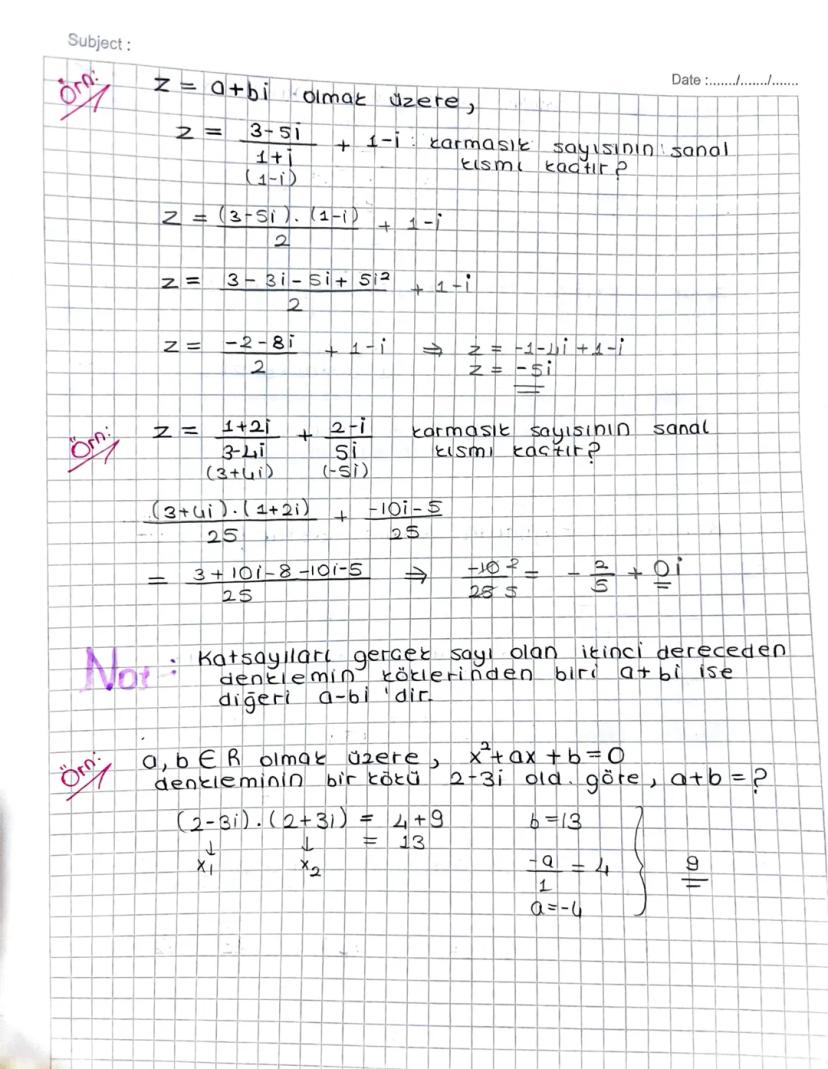 Subject :
Date :......./......./.......
Örn:
z = a+bi olmak üzere,
z = (3-5i)/(1+i) + 1-i karmasık sayısının sanal
(1-i)
kısmı kaçtır?
z = ((3-5i).(1-i))/2 + 1-i
z = (3-3i-5i+5i²)/2 + 1-i
z = (-2-8i)/2 + 1-i ⇒ z = -1-4i+1-i
z = -5i
Örn:
z = (1+2i)/(3-4i) + (2-i)/(5i) karmasık sayısının sanal
(3+4i) (-5i)
kısmı kaçtır?
((3+4i).(1+2i))/25 + (-10i-5)/25
= (3+10i-8-10i-5)/25 ⇒ -10 2/25 5 = -2/5 + 0i
Not : Katsayıları gerçek sayı olan ikinci dereceden
denklemin köklerinden biri a+bi ise
diğeri a-bi 'dir.
Örn:
a, b ∈ R olmak üzere, x²+ax+b=0
denkleminin bir kökü 2-3i old. göre, a+b=?
(2-3i).(2+3i) = 4+9 b=13
↓ ↓ = 13
x₁ x₂ -a/1 = 4 9
a=-4